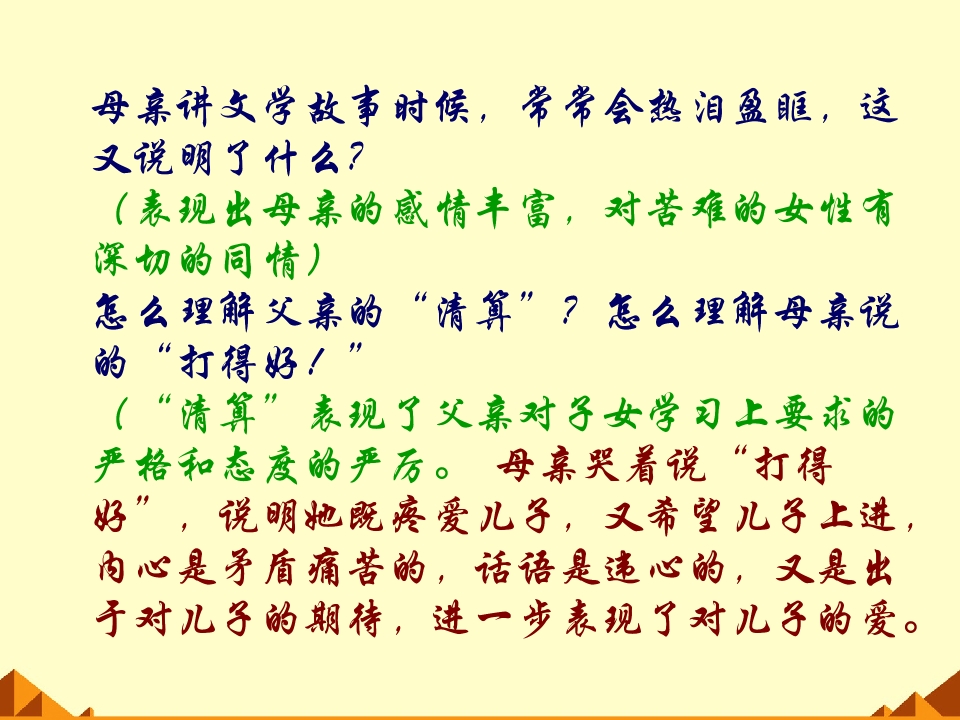 母亲讲文学故事时候，常常会热泪盈眶，这
又说明了什么？
（表现出母亲的感情丰富，对苦难的女性有
深切的同情）
怎么理解父亲的“清算”？怎么理解母亲说
的“打得好！”
（“清算”表现了父亲对子女学习上要求的
严格和态度的严厉。 母亲哭着说“打得
好”，说明她既疼爱儿子，又希望儿子上进，
内心是矛盾痛苦的，话语是违心的，又是出
于对儿子的期待，进一步表现了对儿子的爱。